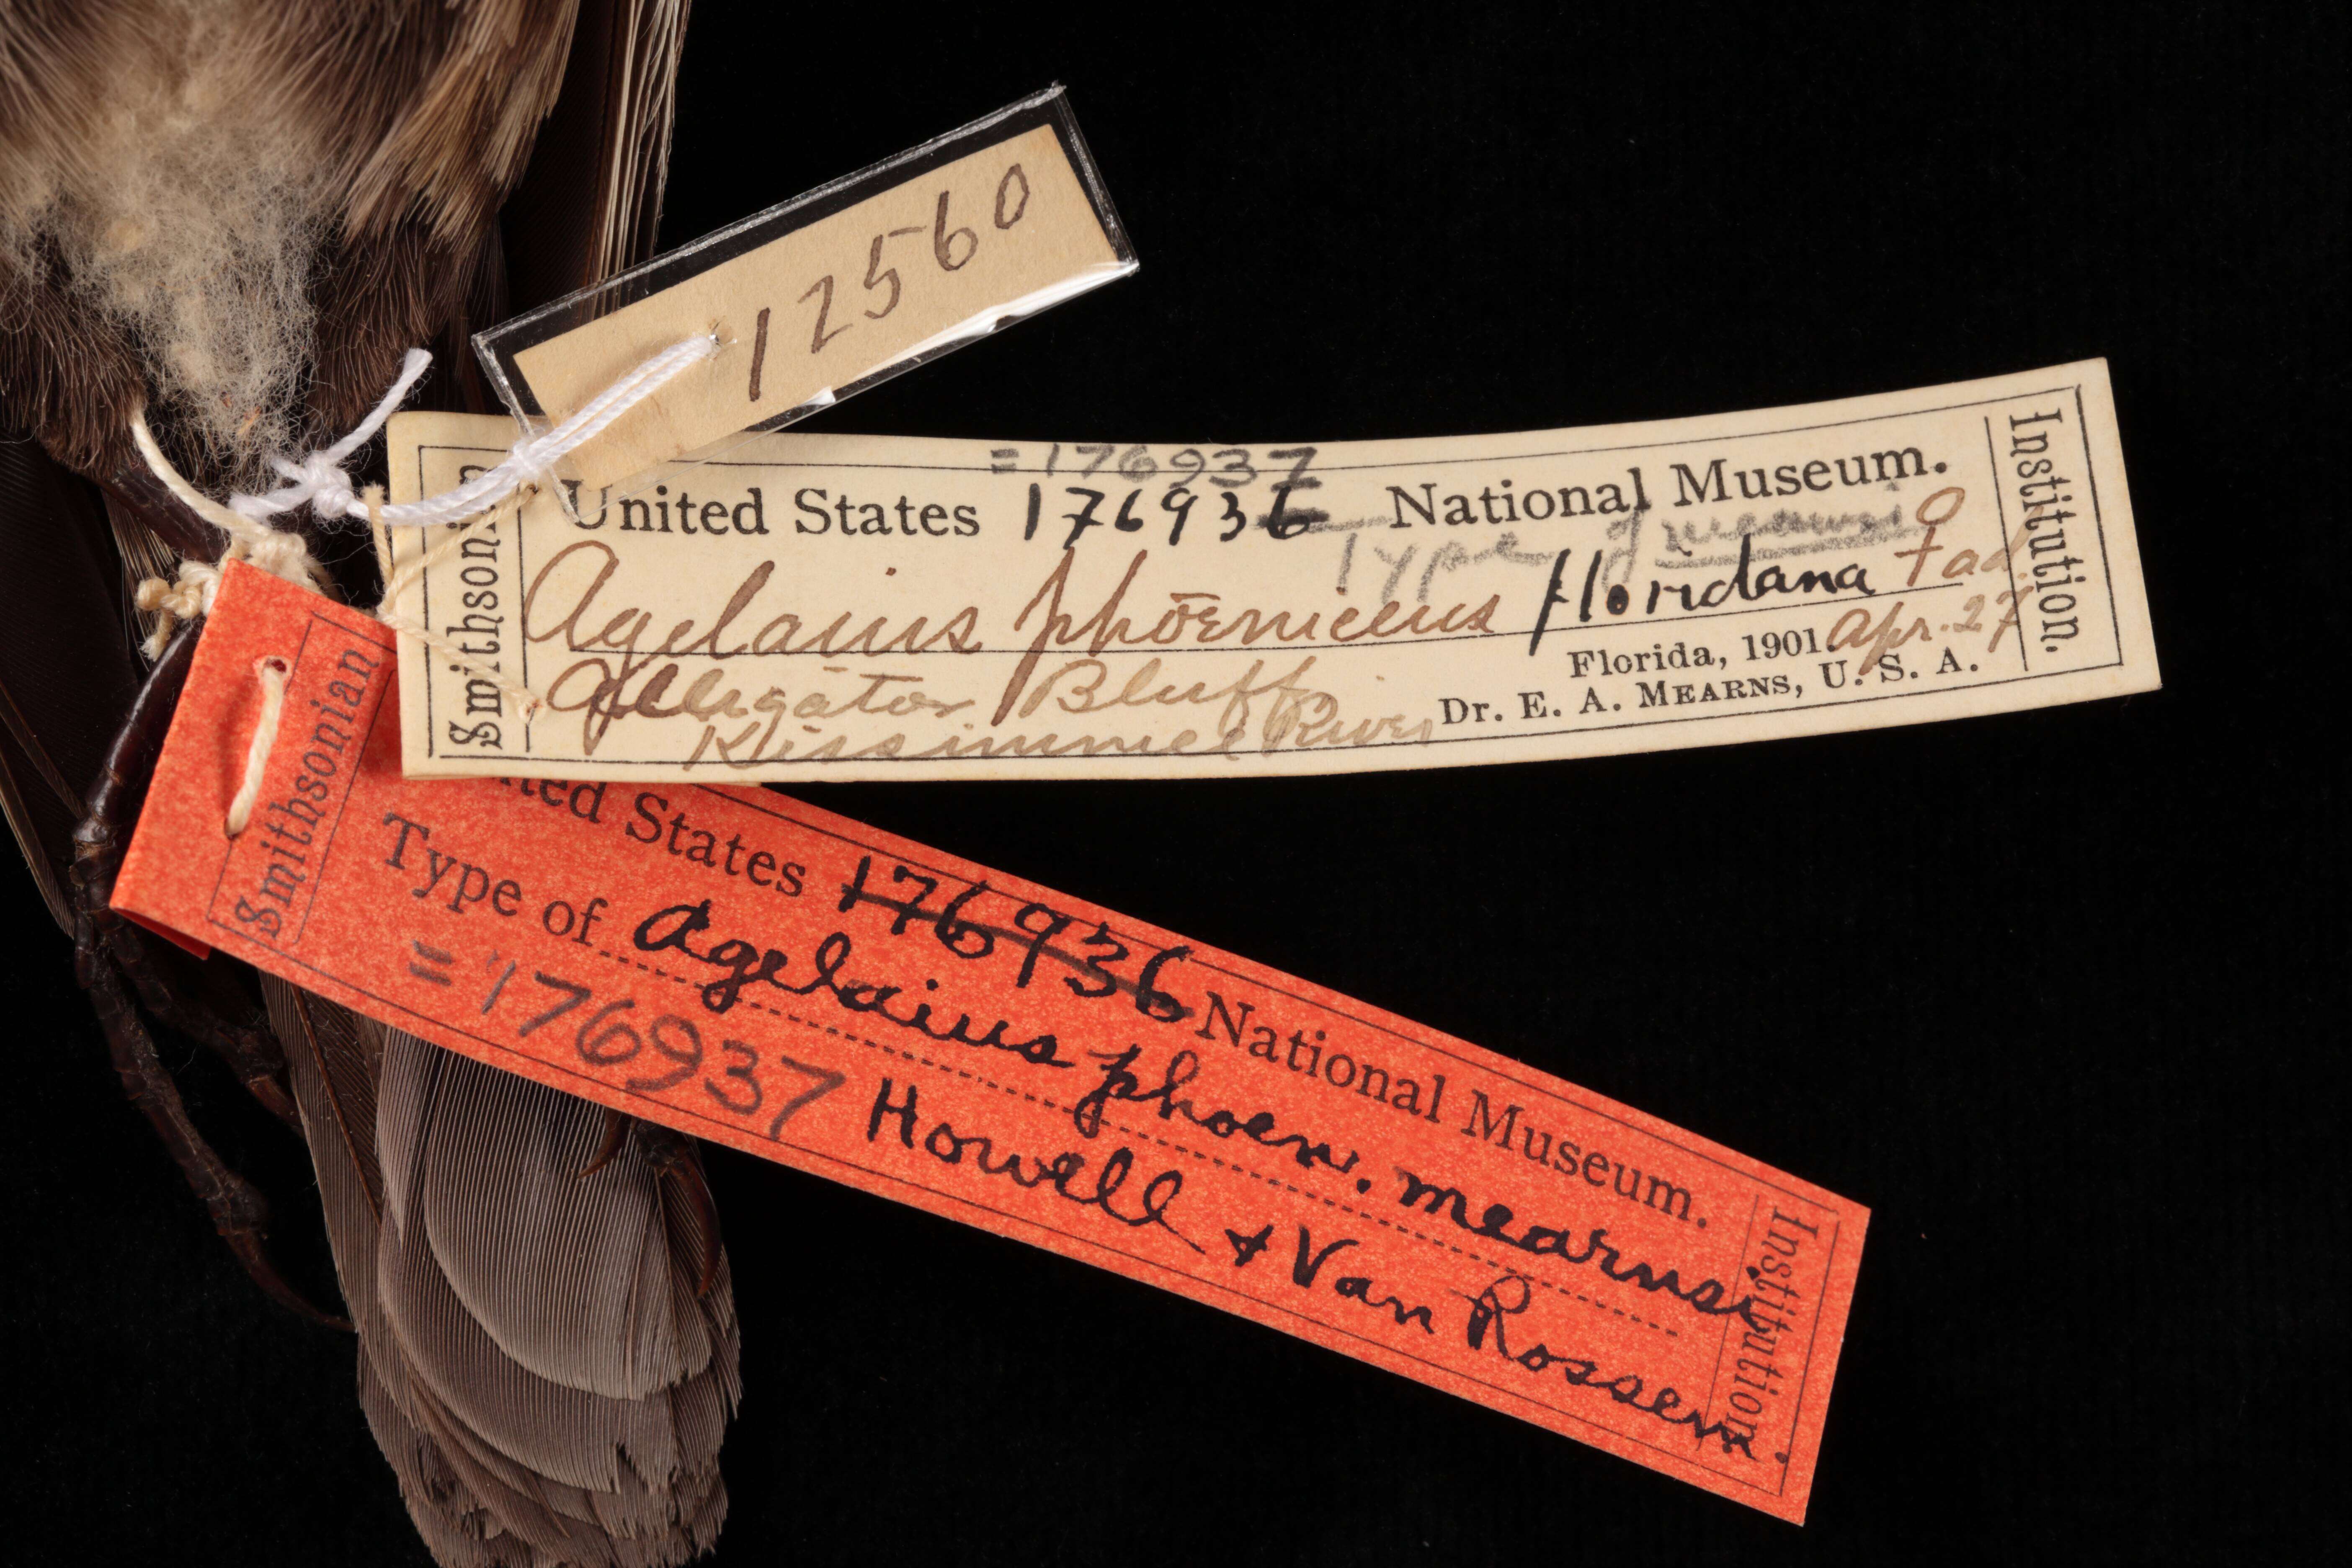 12560
=176937
United States 176936 National Museum.
Type of mearnsi
Agelaius phoeniceus floridana ♀ ad.
Florida, 1901. Apr. 27
Alligator Bluff
Dr. E. A. MEARNS, U. S. A.
Kissimmee River
Smithsonian
Institution.
ted States 176936 National Museum.
Type of Agelaius phoen. mearnsi
=176937 Howell & Van Rossem
Smithsonian
Institution.